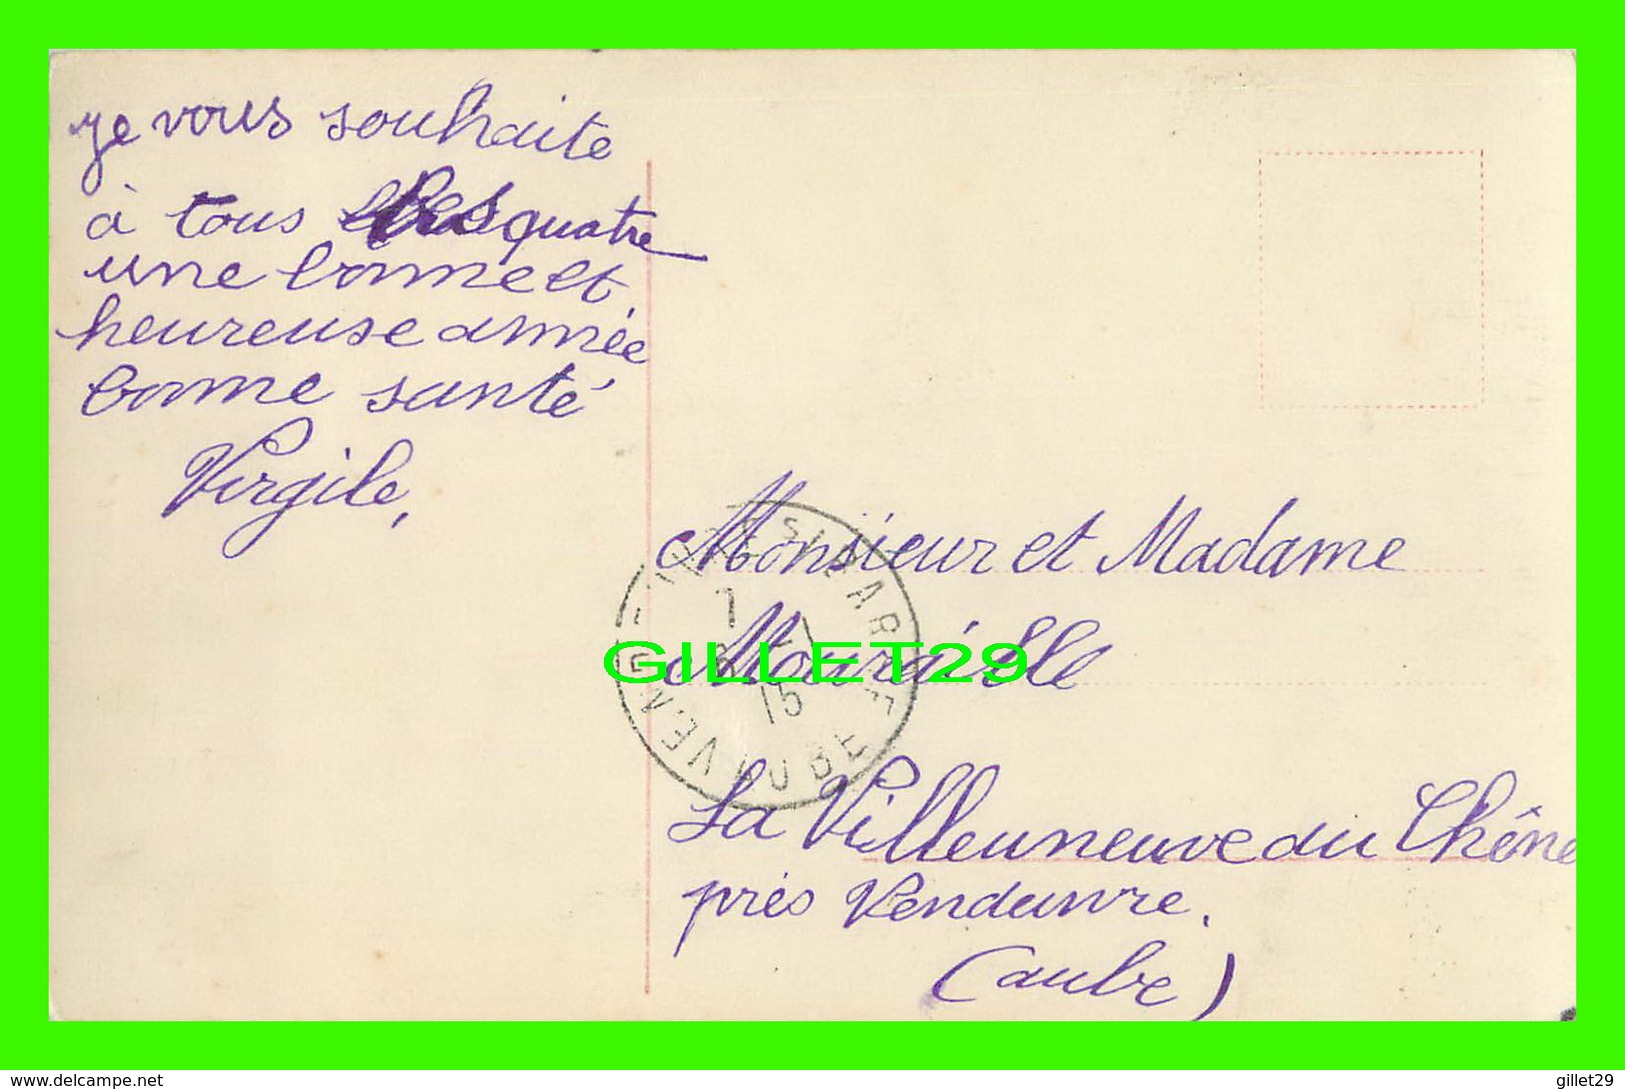 je vous souhaite
à tous les quatre
une bonne et
heureuse année
bonne santé
Virgile,
Monsieur et Madame
GILLET29
La Villeuneuve du Chêne
près Vendeuvre.
(aube)
AUBE
15
gillet29
delcampe.net